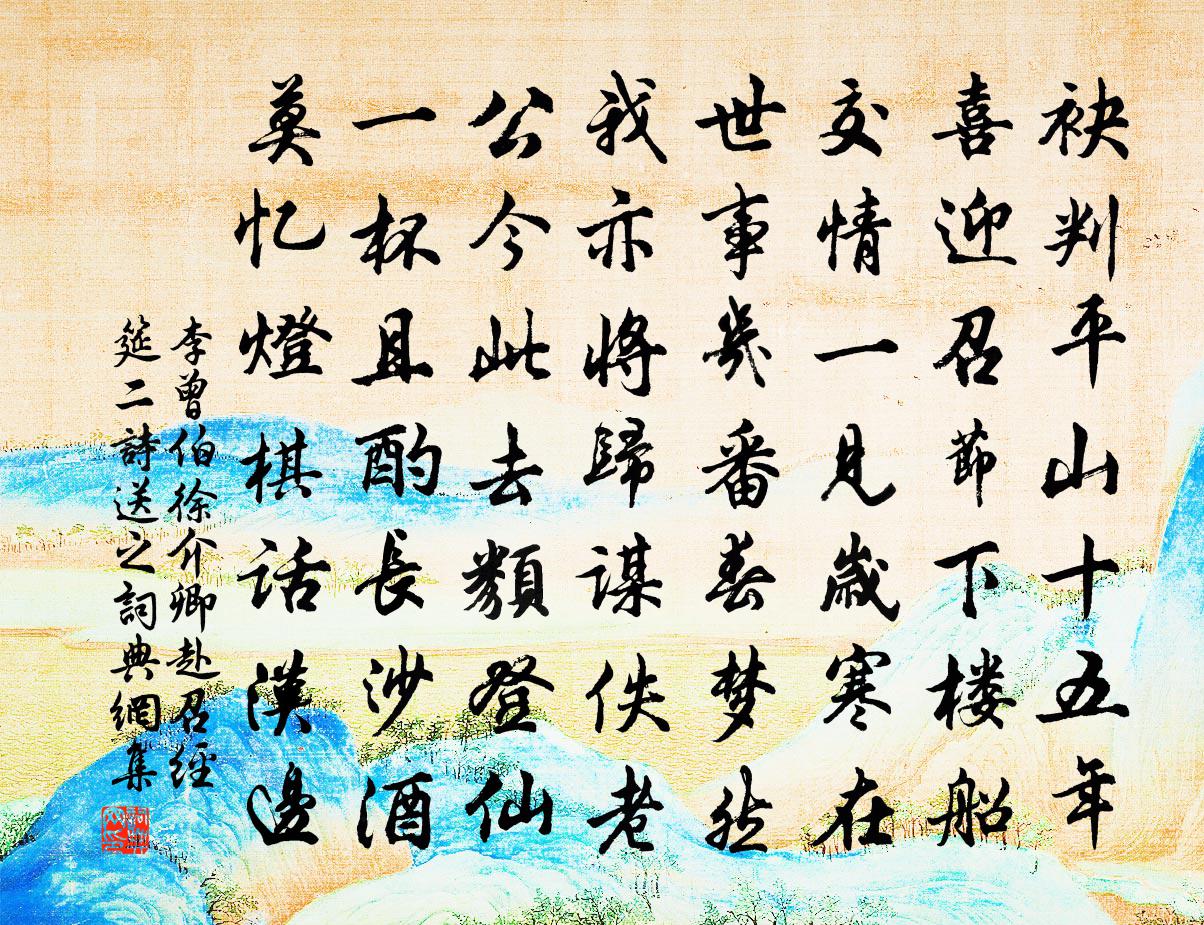 袂判平山十五年
喜迎召節下楼船
交情一見歲寒在
世事幾番春梦然
我亦將歸謀佚老
公今此去類登仙
一杯且酌長沙酒
莫忆燈棋話漢邊
李曾伯徐介卿赴召經
筵二詩送之詞典網集